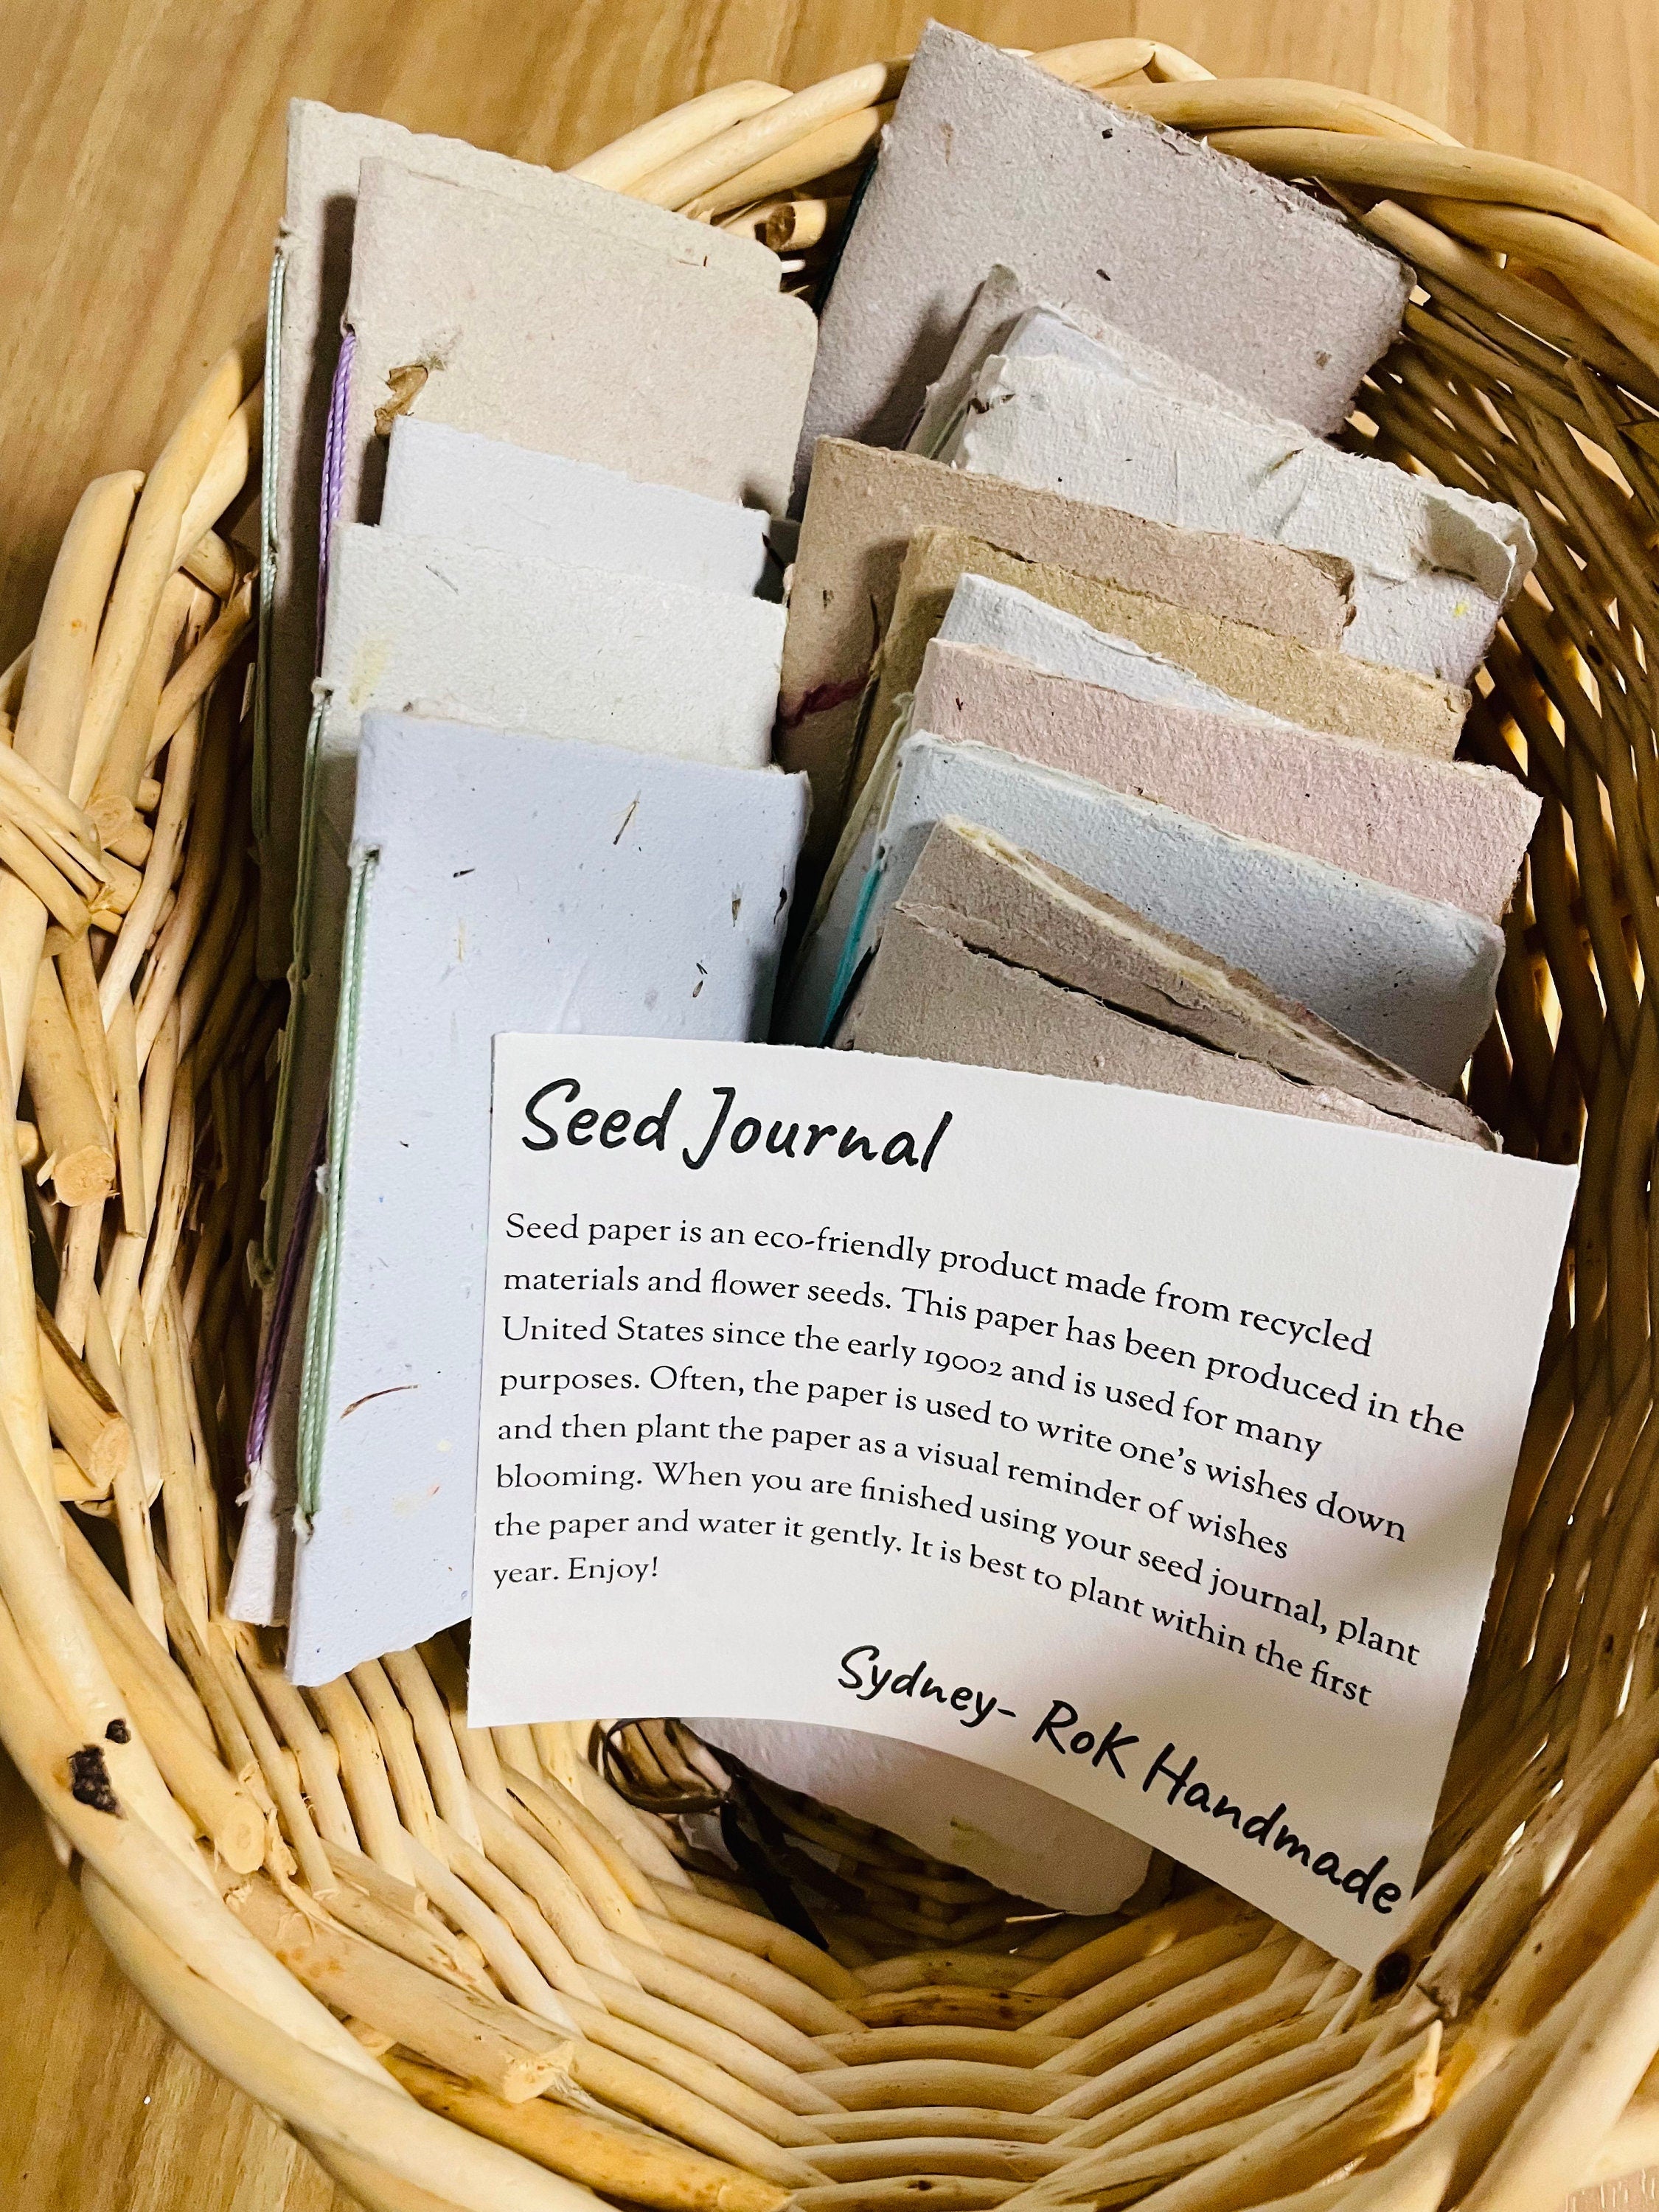 Seed Journal
Seed paper is an eco-friendly product made from recycled
materials and flower seeds. This paper has been produced in the
United States since the early 19002 and is used for many
purposes. Often, the paper is used to write one's wishes down
and then plant the paper as a visual reminder of wishes
blooming. When you are finished using your seed journal, plant
the paper and water it gently. It is best to plant within the first
year. Enjoy!
Sydney- RoK Handmade